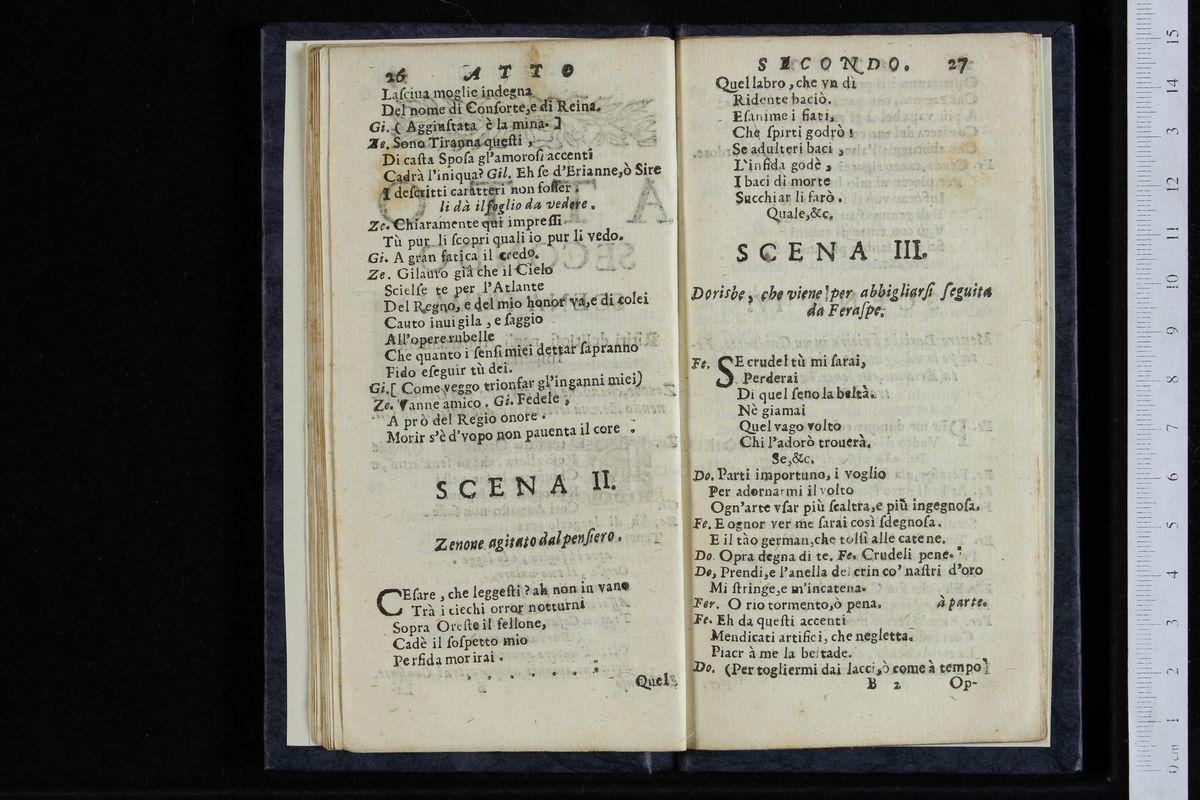 26 ATTO
Laſciua moglie indegna
Del nome di Conſorte,e di Reina.
Gi. ( Aggiuſtata è la mina. ]
Ze. Sono Tiranna queſti ,
Di caſta Spoſa gl'amoroſi accenti
Cadrà l'iniqua? Gil. Eh ſe d'Erianne,ò Sire
I deſcritti caratteri non foſſer .
li dà il foglio da vedere .
Ze. Chiaramente quì impreſſi
Tù pur li ſcopri quali io pur li vedo.
Gi. A gran fatica il credo.
Ze. Gilauro già che il Cielo
Scielſe te per l'Atlante
Del Regno, e del mio honor và,e di colei
Cauto inuigila , e ſaggio
All'opere rubelle
Che quanto i ſenſi miei dettar ſapranno
Fido eſeguir tù dei.
Gi.[ Come veggo trionfar gl'inganni miei)
Ze. Vanne amico . Gi. Fedele ,
A prò del Regio onore .
Morir s'è d'vopo non pauenta il core .
SCENA II.
Zenone agitato dal penſiero .
CEſare , che leggeſti ? ah non in vano
Trà i ciechi orror notturni
Sopra Oreſte il fellone,
Cadè il ſoſpetto mio
Perfida morirai .
Quel
SECONDO. 27
Quel labro , che vn dì
Ridente baciò.
Eſanime i fiati,
Che ſpirti godrò !
Se adulteri baci ,
L'infida godè ,
I baci di morte
Succhiar li farò .
Quale,&c.
SCENA III.
Dorisbe , che viene per abbigliarſi ſeguita
da Feraſpe.
Fe. SE crudel tù mi ſarai,
Perderai
Di quel ſeno la beltà.
Nè giamai
Quel vago volto
Chi l'adorò trouerà.
Se,&c.
Do. Parti importuno, i voglio
Per adornarmi il volto
Ogn'arte vſar più ſcaltra,e più ingegnoſa.
Fe. E ognor ver me ſarai così ſdegnoſa.
E il tào german,che tolſi alle catene.
Do. Opra degna di te. Fe. Crudeli pene.
Do, Prendi,e l'anella del crin co' naſtri d'oro
Mi ſtringe,e m'incatena.
Fer. O rio tormento,ò pena. à parte.
Fe. Eh da queſti accenti
Mendicati artifici, che negletta.
Piacr à me la beltade.
Do. (Per togliermi dai lacci,ò come à tempo]
B 2 Op-